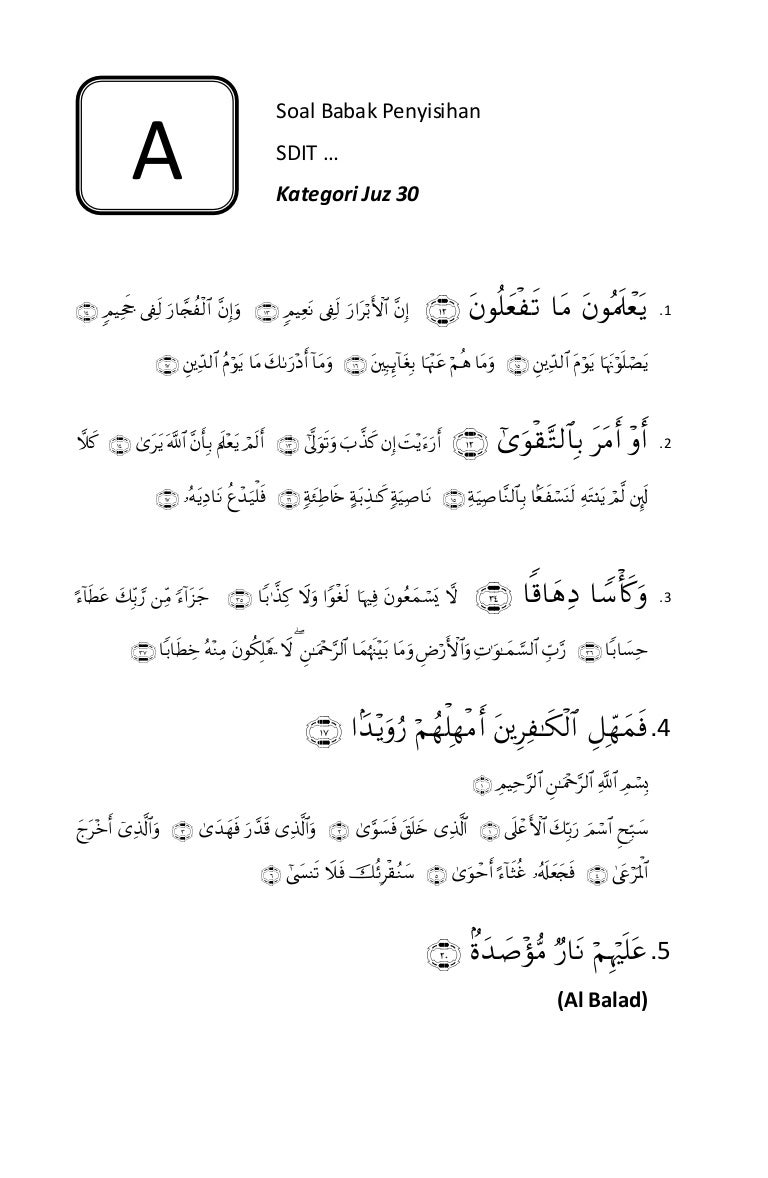 A
Soal Babak Penyisihan
SDIT ...
Kategori Juz 30
1. يَعْلَمُونَ مَا تَفْعَلُونَ ١٢ إِنَّ ٱلْأَبْرَارَ لَفِى نَعِيمٍ ١٣ وَإِنَّ ٱلْفُجَّارَ لَفِى جَحِيمٍ ١٤
يَصْلَوْنَهَا يَوْمَ ٱلدِّينِ ١٥ وَمَا هُمْ عَنْهَا بِغَآئِبِينَ ١٦ وَمَآ أَدْرَىٰكَ مَا يَوْمُ ٱلدِّينِ ١٧
2. أَوْ أَمَرَ بِٱلتَّقْوَىٰٓ ١٢ أَرَءَيْتَ إِن كَذَّبَ وَتَوَلَّىٰٓ ١٣ أَلَمْ يَعْلَم بِأَنَّ ٱللَّهَ يَرَىٰ ١٤ كَلَّا
لَئِن لَّمْ يَنتَهِ لَنَسْفَعًۢا بِٱلنَّاصِيَةِ ١٥ نَاصِيَةٍ كَـٰذِبَةٍ خَاطِئَةٍ ١٦ فَلْيَدْعُ نَادِيَهُۥ ١٧
3. وَكَأْسًا دِهَاقًا ٣٤ لَّا يَسْمَعُونَ فِيهَا لَغْوًا وَلَا كِذَّٰبًا ٣٥ جَزَآءً مِّن رَّبِّكَ عَطَآءً
حِسَابًا ٣٦ رَّبِّ ٱلسَّمَـٰوَٰتِ وَٱلْأَرْضِ وَمَا بَيْنَهُمَا ٱلرَّحْمَـٰنِ ۖ لَا يَمْلِكُونَ مِنْهُ خِطَابًا ٣٧
4. فَمَهِّلِ ٱلْكَـٰفِرِينَ أَمْهِلْهُمْ رُوَيْدًۢا ١٧
بِسْمِ ٱللَّهِ ٱلرَّحْمَـٰنِ ٱلرَّحِيمِ ١
سَبِّحِ ٱسْمَ رَبِّكَ ٱلْأَعْلَى ١ ٱلَّذِى خَلَقَ فَسَوَّىٰ ٢ وَٱلَّذِى قَدَّرَ فَهَدَىٰ ٣ وَٱلَّذِىٓ أَخْرَجَ
ٱلْمَرْعَىٰ ٤ فَجَعَلَهُۥ غُثَآءً أَحْوَىٰ ٥ سَنُقْرِئُكَ فَلَا تَنسَىٰٓ ٦
5. عَلَيْهِمْ نَارٌ مُّؤْصَدَةٌۢ ٢٠
(Al Balad)